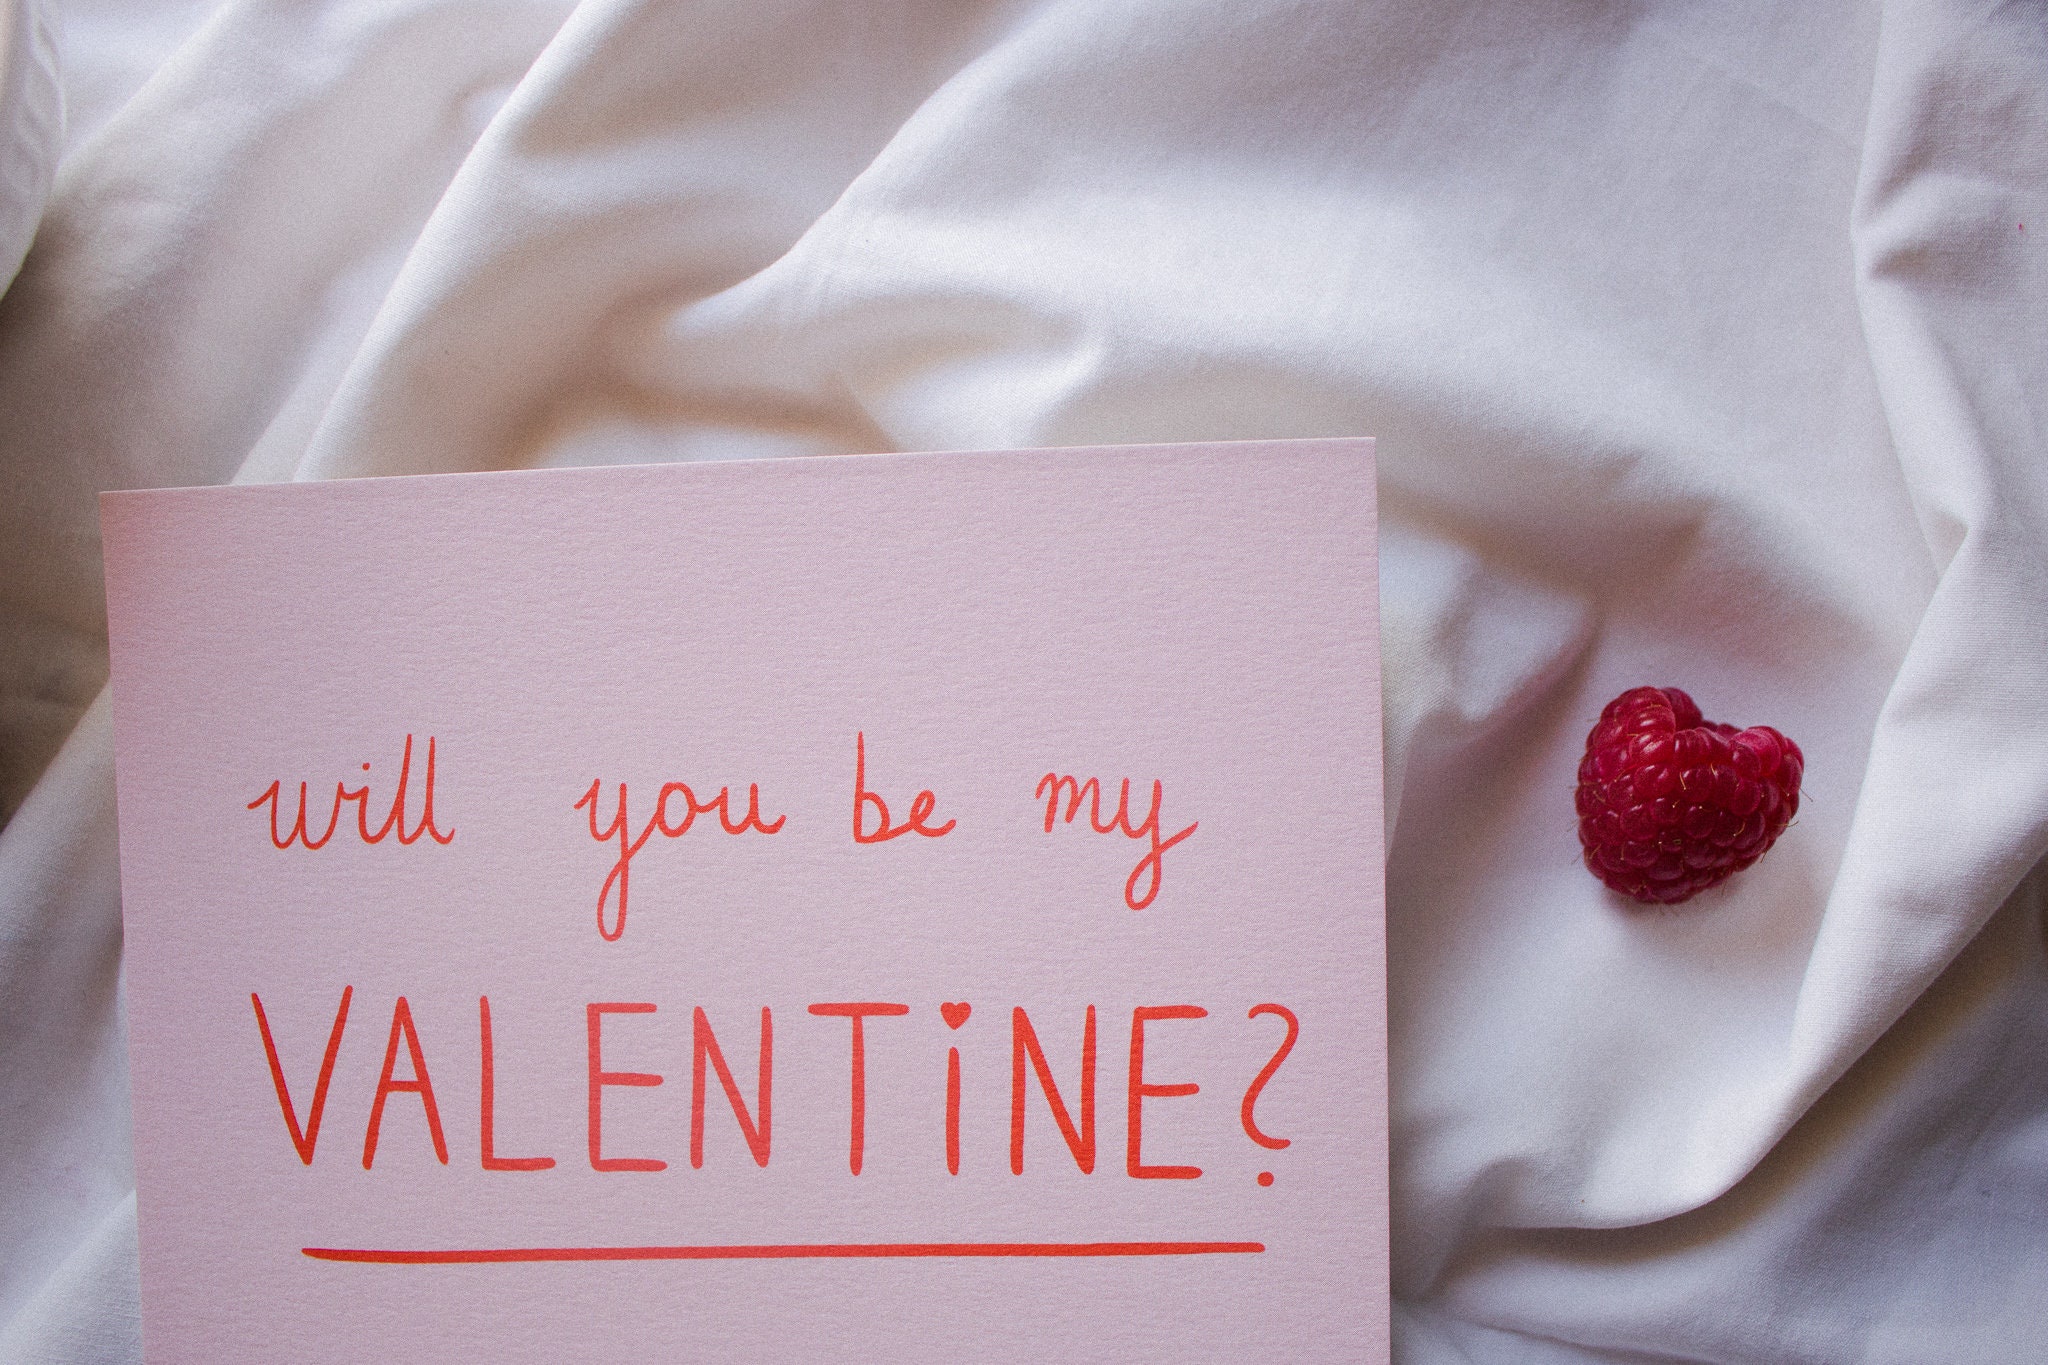 will you be my
VALENTiNE?